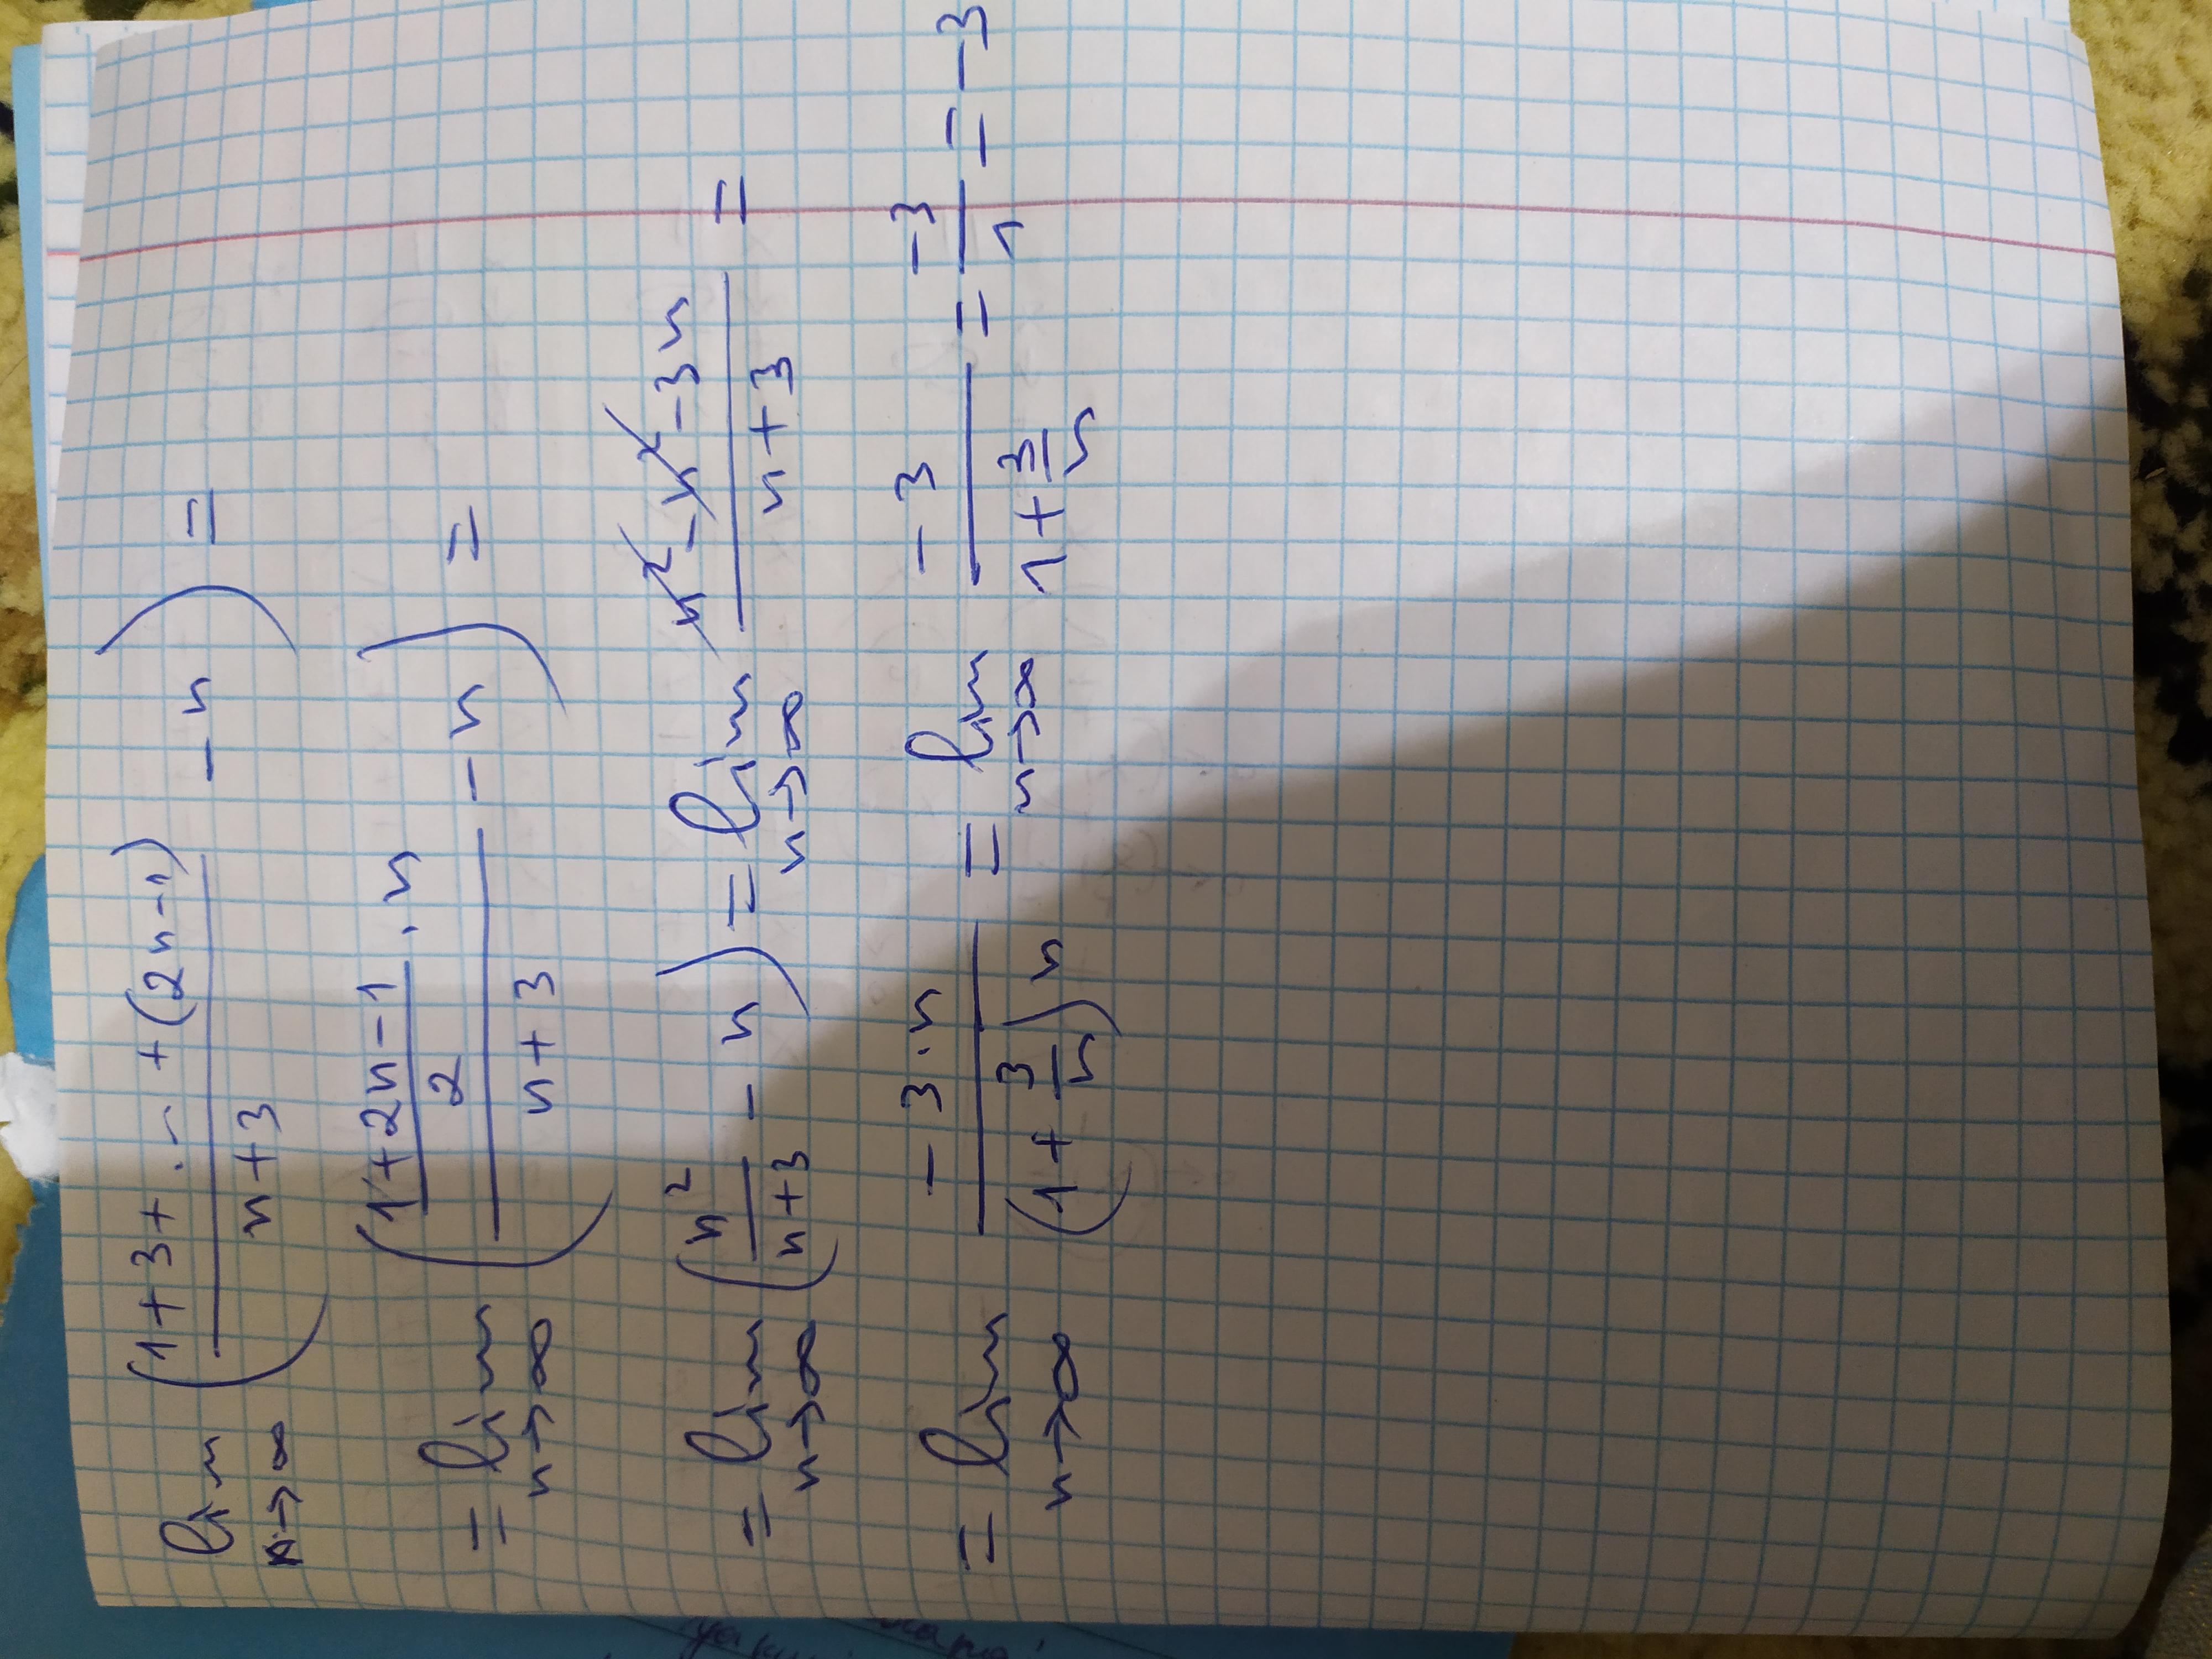 lim n→∞ ((1+3+...+(2n-1))/(n+3) - n) =
= lim n→∞ (((1+2n-1)/2 · n)/(n+3) - n) =
= lim n→∞ (n²/(n+3) - n) = lim n→∞ (n² - n² - 3n)/(n+3) =
= lim n→∞ (-3·n)/((1+3/n)n) = lim n→∞ (-3)/(1+3/n) = -3/1 = -3